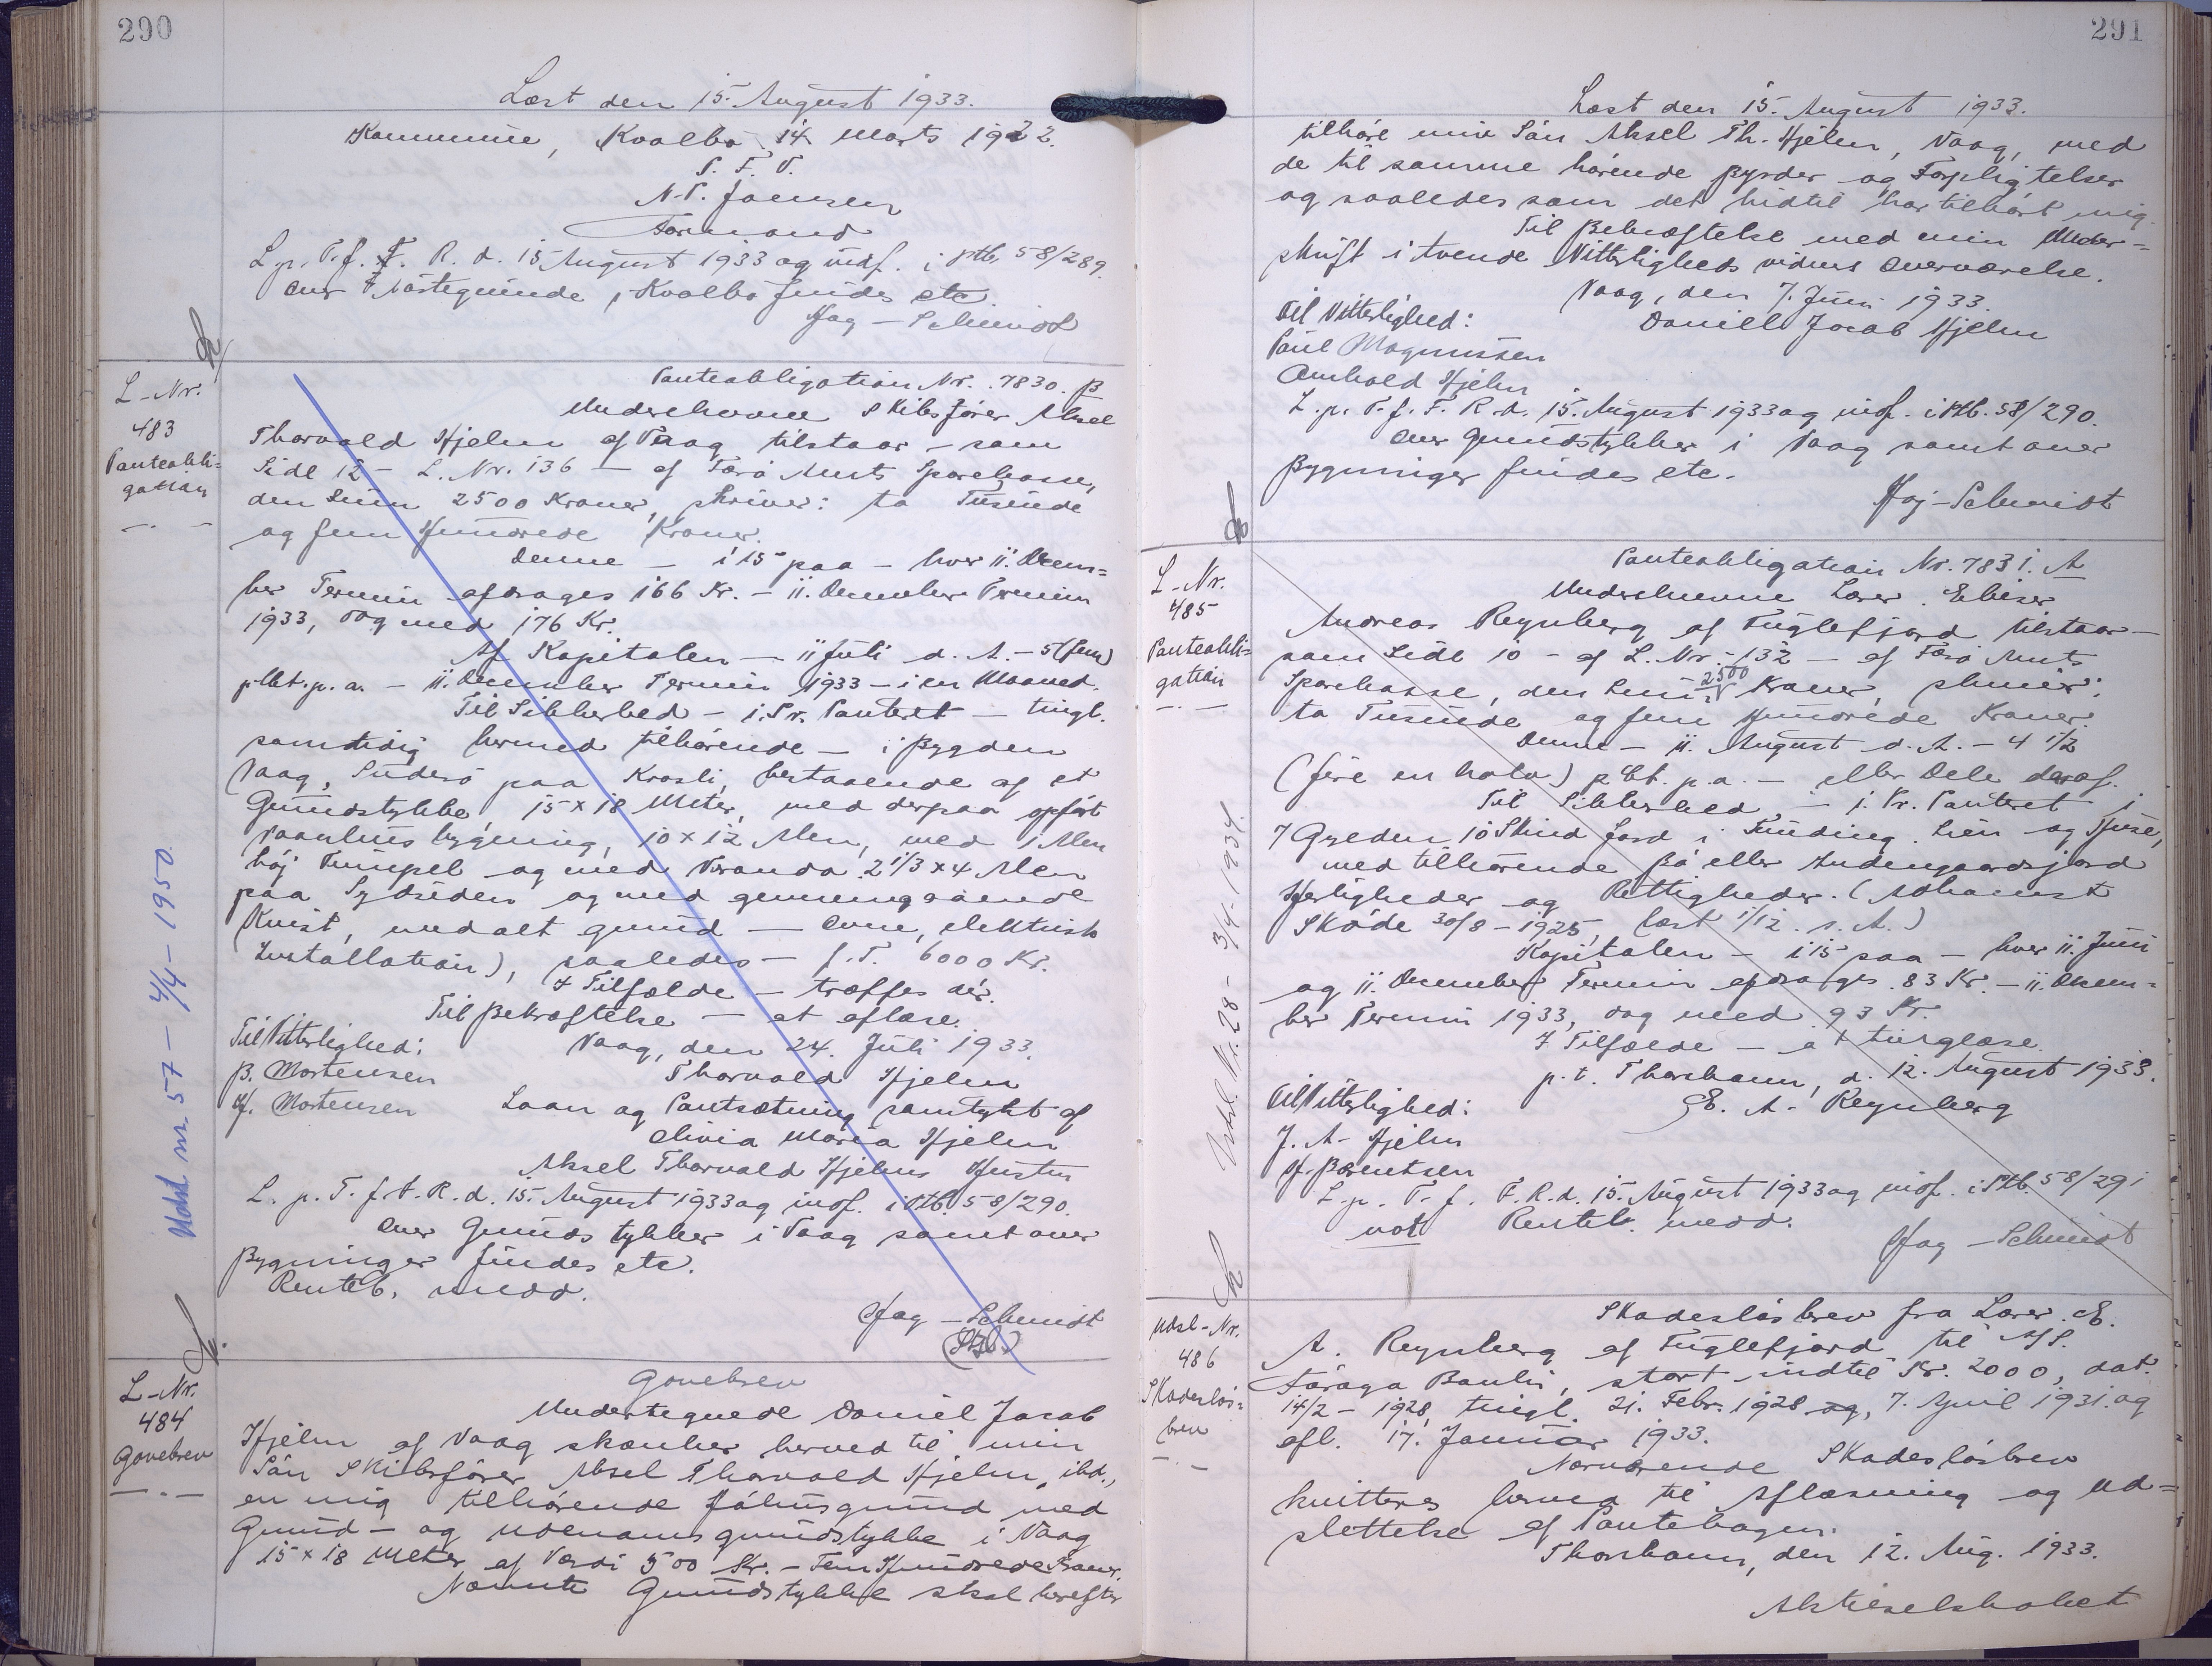 290
Læst den 15. August 1933.
Kommune, Kvalbø 14 Marts 1922.
P. F. V.
N. P. Joensen
Formand
L. p. T. f. F. R. d. 15 August 1933 og indf. i Ptb. 58/289.
Over Næstegrunde i Kvalbø findes etc.
Høy-Schmidt
L-Nr.
483
Panteobli=
gation
Panteobligation Nr. 7830. B
Underskrevne Skibsfører Aksel
Thorvald Hjelm af Vaag tilstaar - som
Side 12 - L. Nr. 136 - af Færø Amts Sparekasse,
den Sum 2500 Kroner, skriver: to Tusinde
og fem Hundrede Kroner.
Denne - i 15 paa - hver 11. Decem=
ber Termin afdrages 166 Kr. - 11. December Termin
1933, dog med 176 Kr.
Af Kapitalen - 11 Juli d. A. - 5 (fem)
pCt. p. a. - 11. December Termin 1933 - i en Maaned.
Til Sikkerhed - 1. Pr. Panteret - tingl.
samtidig hermed tilhørende - i Bygden
Vaag, Suderø paa Krosli, bestaaende af et
Grundstykke, 15 x 18 Meter, med derpaa opført
Vaanhus bygning, 10 x 12 Alen, med 1 Alen
høj Trempel og med Veranda 2 1/3 x 4 Alen
paa Sydsiden og med gennemgaaende
Kvist, med alt grund - Ovne, elektrisk
Installation), saaledes - f. T. 6000 Kr.
I Tilfælde - træffes der.
Til Bekræftelse - at aflæse.
Til Vitterlighed: Vaag, den 24. Juli 1933.
B. Mortensen Thorvald Hjelm
H. Mortensen Laan og Pantsætning samtykt af
Olivia Maria Hjelm
Aksel Thorvald Hjelms Hustru
L. p. T. f. F. R. d. 15. August 1933 og indf. i Ptb. 58/290.
Over Grundstykker i Vaag samt over
Bygninger findes etc.
Renteb. medd.
Høy-Schmidt
Udsl. nr. 57 - 4/4 - 1950.
L-Nr.
484
Gavebrev
Gavebrev
Undertegnede Daniel Jacob
Hjelm af Vaag skænker herved til min
Søn Skibsfører Aksel Thorvald Hjelm, ibd.,
en mig tilhørende Jáhusgrund med
Grund- og udenoms grundstykke i Vaag
15 x 18 Meter af Værdi 500 Kr. - Fem Hundrede Kroner.
Nævnte Grundstykke skal herefter
291
Læst den 15. August 1933.
tilhøre min Søn Aksel Th. Hjelm, Vaag, med
de til samme hørende Byrder og Forpligtelser
og saaledes som det hidtil har tilhørt mig.
Til Bekræftelse med min Under=
skrift i tvende Vitterligheds vidners Overværelse.
Vaag, den 7. Juni 1933.
Til Vitterlighed: Daniel Jacob Hjelm
Poul Magnussen
Arnhold Hjelm
L. p. T. f. F. R. d. 15. August 1933 og indf. i Ptb. 58/290.
Over Grundstykker i Vaag samt over
Bygninger findes etc.
Høj-Schmidt
L-Nr.
485
Panteobli=
gation
Panteobligation Nr. 7831. A
Underskrevne Lærer Elieser
Andreas Reynberg af Fuglefjord tilstaar -
som Side 10 - af L. Nr. 132 - af Færø Amts
Sparekasse, den Sum 2500 Kroner, skriver:
to Tusinde og fem Hundrede Kroner.
Denne - 11. August d. A. - 4 1/2
(fire en halv) pCt. p. a. - eller Dele deraf.
Til Sikkerhed - 1. Pr. Panteret i
7 Gylden 10 Skind Jord i Funding. Lien og Huse,
med tilhørende Bø eller Indengaardsjord
Herligheder og Rettigheder. (Adkomst
Skøde 30/8 - 1925, læst 1/12. s. A.)
Kapitalen - i 15 paa - hver 11. Juni
og 11. December Termin afdrages 83 Kr. - 11. Decem=
ber Termin 1933, dog med 93 Kr.
I Tilfælde - at tinglæse.
p. t. Thorshavn, d. 12. August 1933.
Til Vitterlighed: E. A. Reynberg
J. A. Hjelm
H. Berentsen
L. p. T. f. F. R. d. 15. August 1933 og indf. i Ptb. 58/291
not Renteb. medd.
Høy-Schmidt
Udsl. Nr. 28 - 3/4 - 1934.
Udsl-Nr.
486
Skadesløs=
brev
Skadesløsbrev fra Lærer E.
A. Reynberg af Fuglefjord til A/S.
Føroya Banki, stort indtil Kr. 2000, dat.
14/2 - 1928, tingl. 21. Febr. 1928 og, 7. April 1931. og
afl. 17. Januar 1933.
Nærværende Skadesløsbrev
kvitteres herved til Aflæsning og Ud=
slettelse af Pantebogen.
Thorshavn, den 12. Aug. 1933.
Aktieselskabet